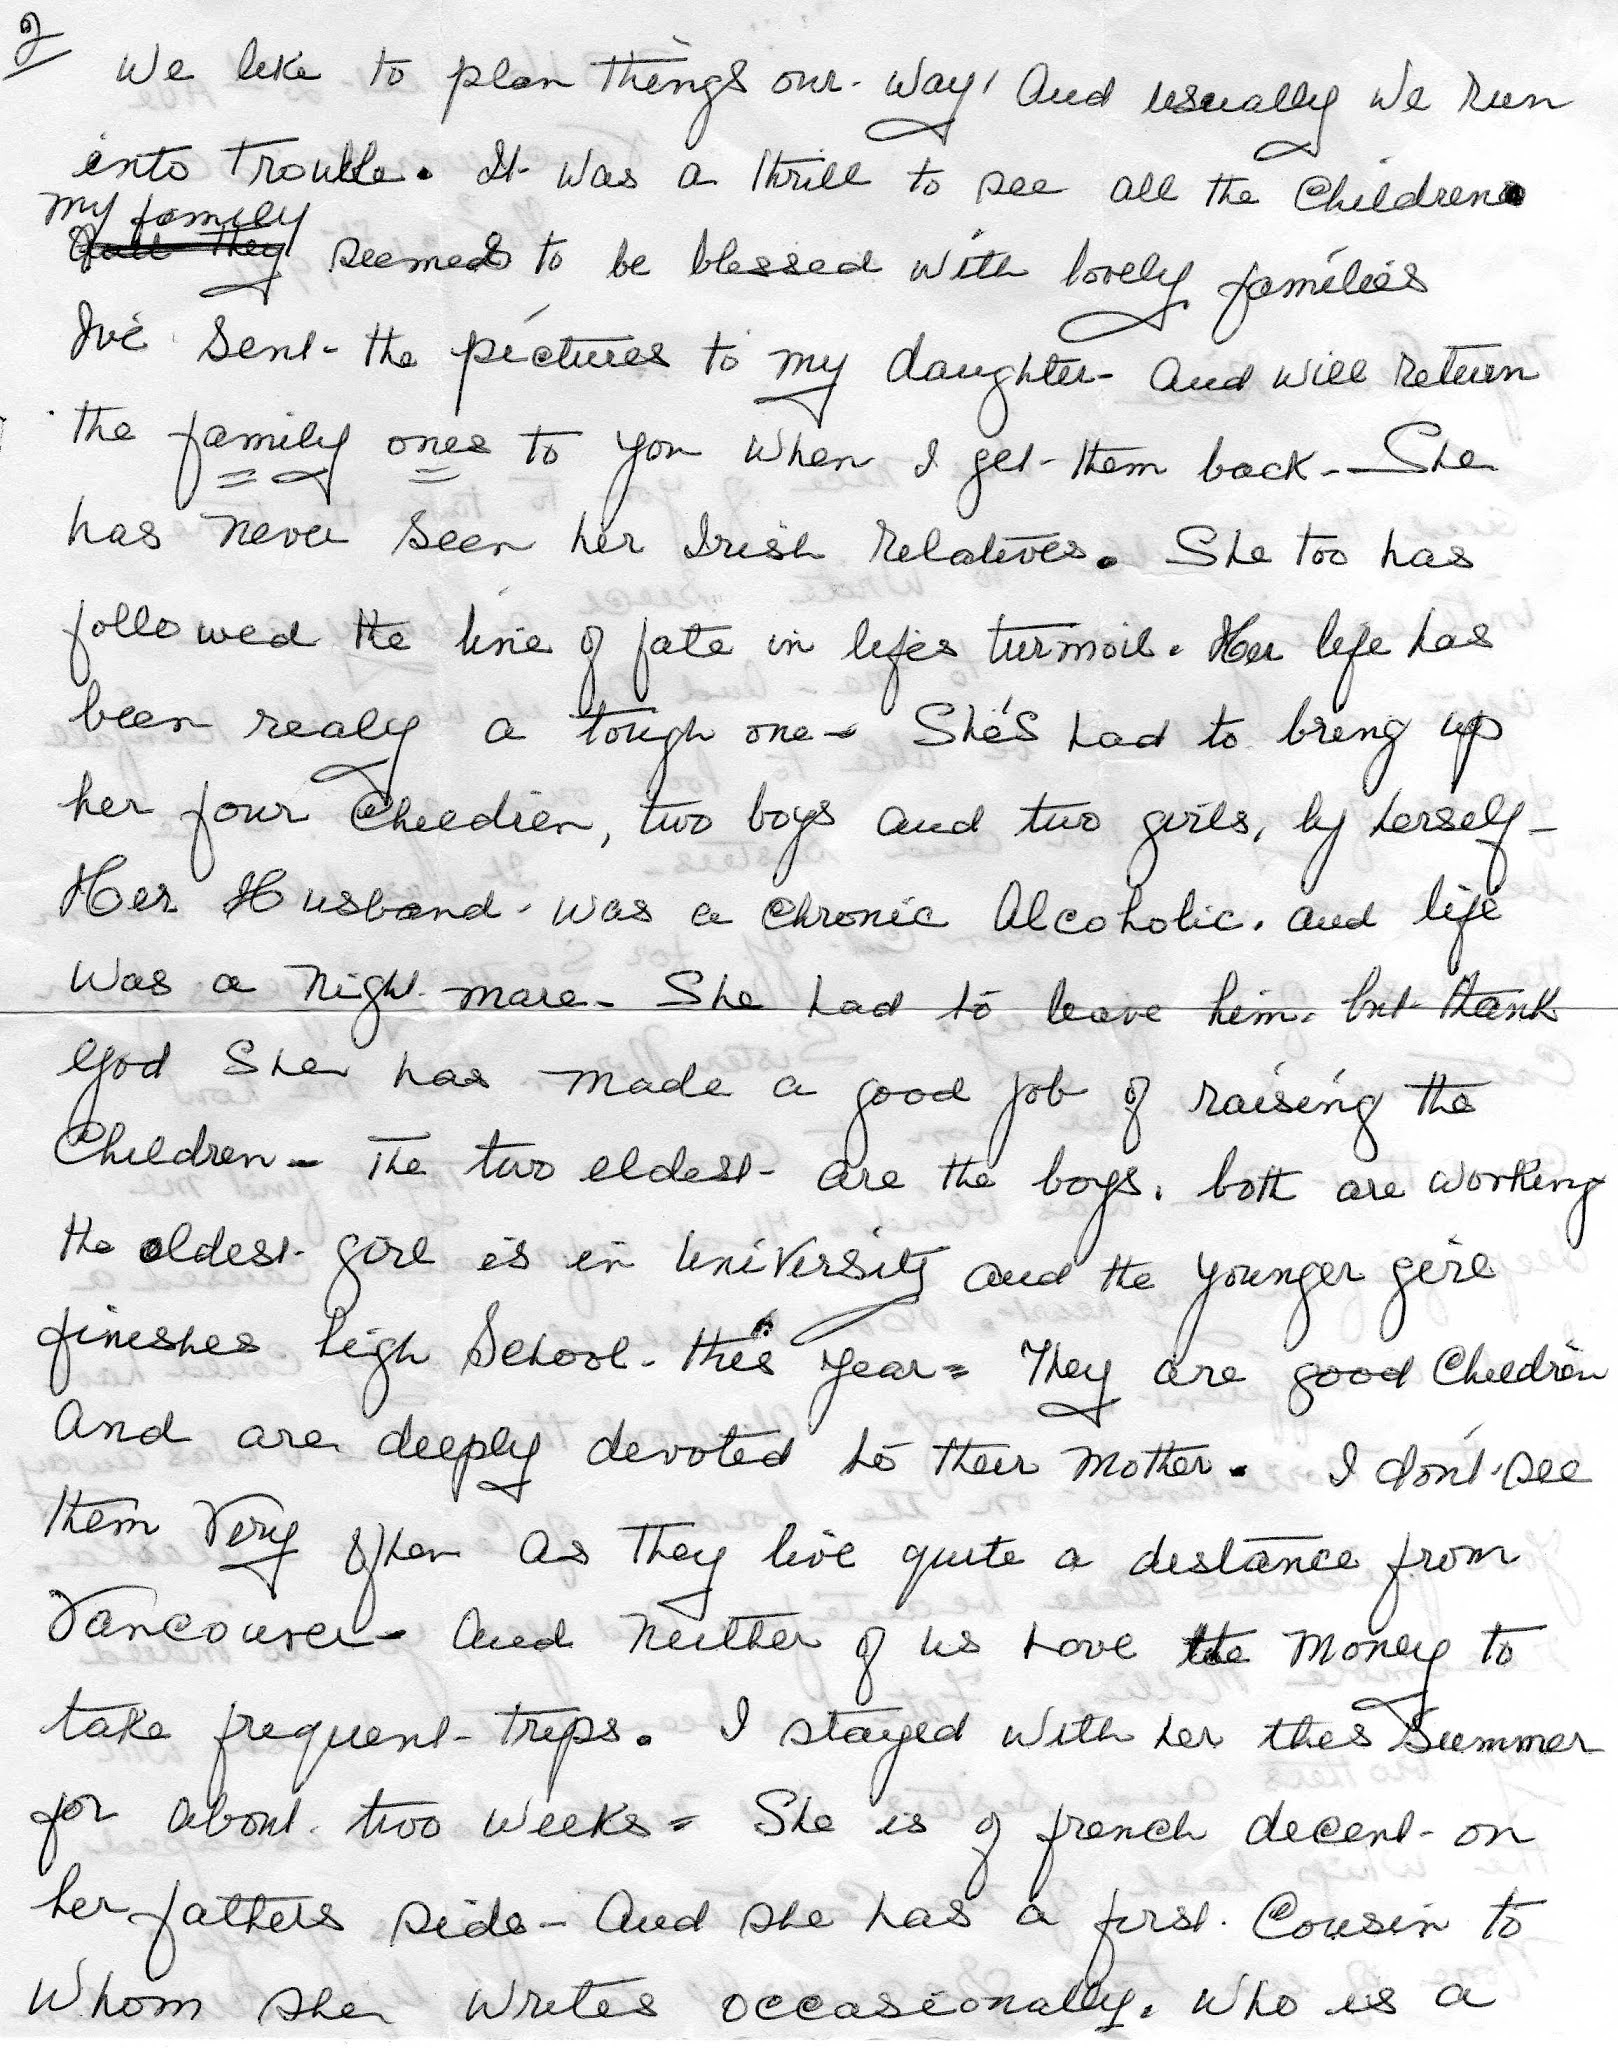 2
We like to plan things our way, And usually we run
into trouble. It was a thrill to see all the Children.
my family
And they seemed to be blessed with lovely families
I've sent the pictures to my daughter and will return
the family ones to you when I get them back - She
has never seen her Irish Relatives. She too has
followed the line of fate in lifes turmoil. Her life has
been realy a tough one - She's had to bring up
her four Children, two boys and two girls, by herself -
Her Husband was a chronic Alcoholic. and life
was a night mare - She had to leave him. but thank
God She has made a good job of raising the
Children - The two eldest are the boys. both are working
the oldest girl is in University and the younger girl
finishes high School this year = They are good Children
And are deeply devoted to their mother. I don't see
them very often as they live quite a distance from
Vancouver - And neither of us have the money to
take frequent trips. I stayed with her this Summer
for about two weeks = She is of french decent on
her fathers side - And she has a first Cousin to
Whom she writes occasionally. who is a